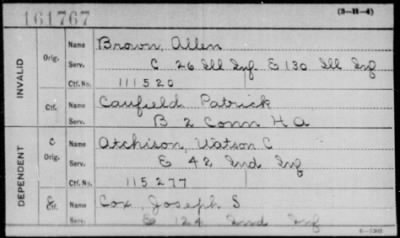 161767
(3-H-4)
INVALID
Orig.
Name Brown, Allen
Serv. C 26 Ill Inf E 130 Ill Inf
Ctf. No. 111520
Ctf.
Name Caufield Patrick
Serv. B 2 Conn H A
DEPENDENT
C
Orig.
Name Atchison, Watson C
Serv. E 42 Ind Inf
Ctf. No. 115277
Ctf.
Name Cox, Joseph S
Serv. E 124 Ind Inf